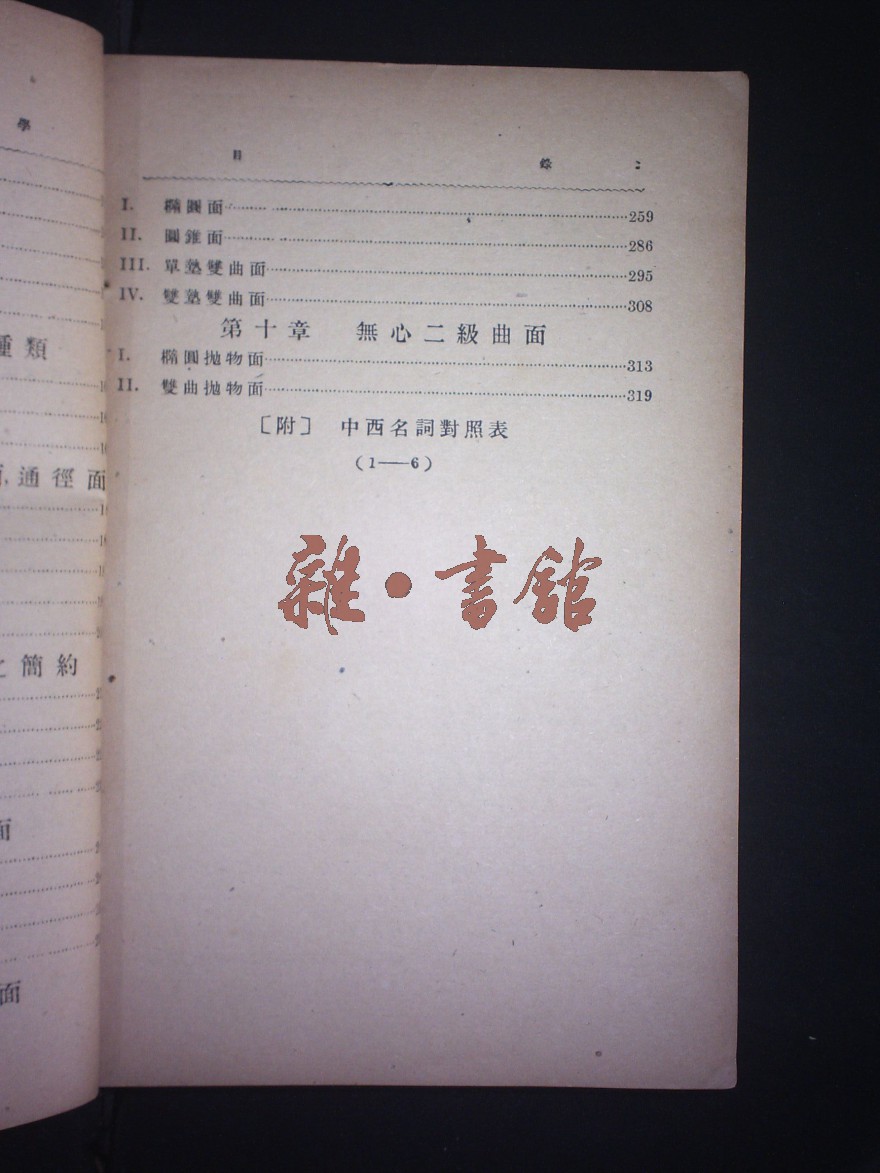 學
種類
通徑面
簡約
面
面
目 錄
I. 橢圓面 259
II. 圓錐面 286
III. 單墊雙曲面 295
IV. 雙墊雙曲面 308
第十章 無心二級曲面
I. 橢圓抛物面 313
II. 雙曲抛物面 319
[附] 中西名詞對照表
(1——6)
雜·書館